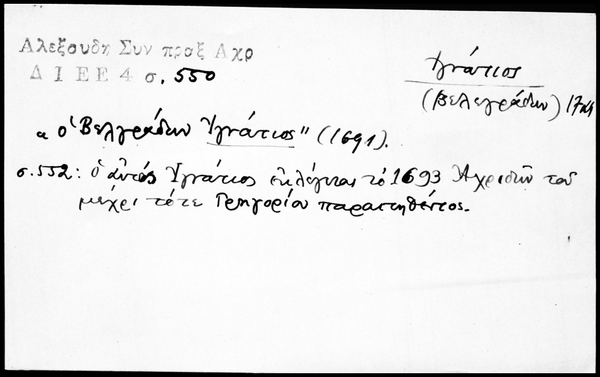 Αλεξουδη Συν πραξ Αχρ
ΔΙΕΕ 4 σ. 550
Ἰγνάτιος
(Βελεγράδων)
"ὁ Βελγράδων Ἰγνάτιος" (1691).
σ. 552: ὁ αὐτός Ἰγνάτιος ἐκλέγεται τό 1693 Ἀχριδῶν τοῦ
μέχρι τότε Γρηγορίου παραιτηθέντος.